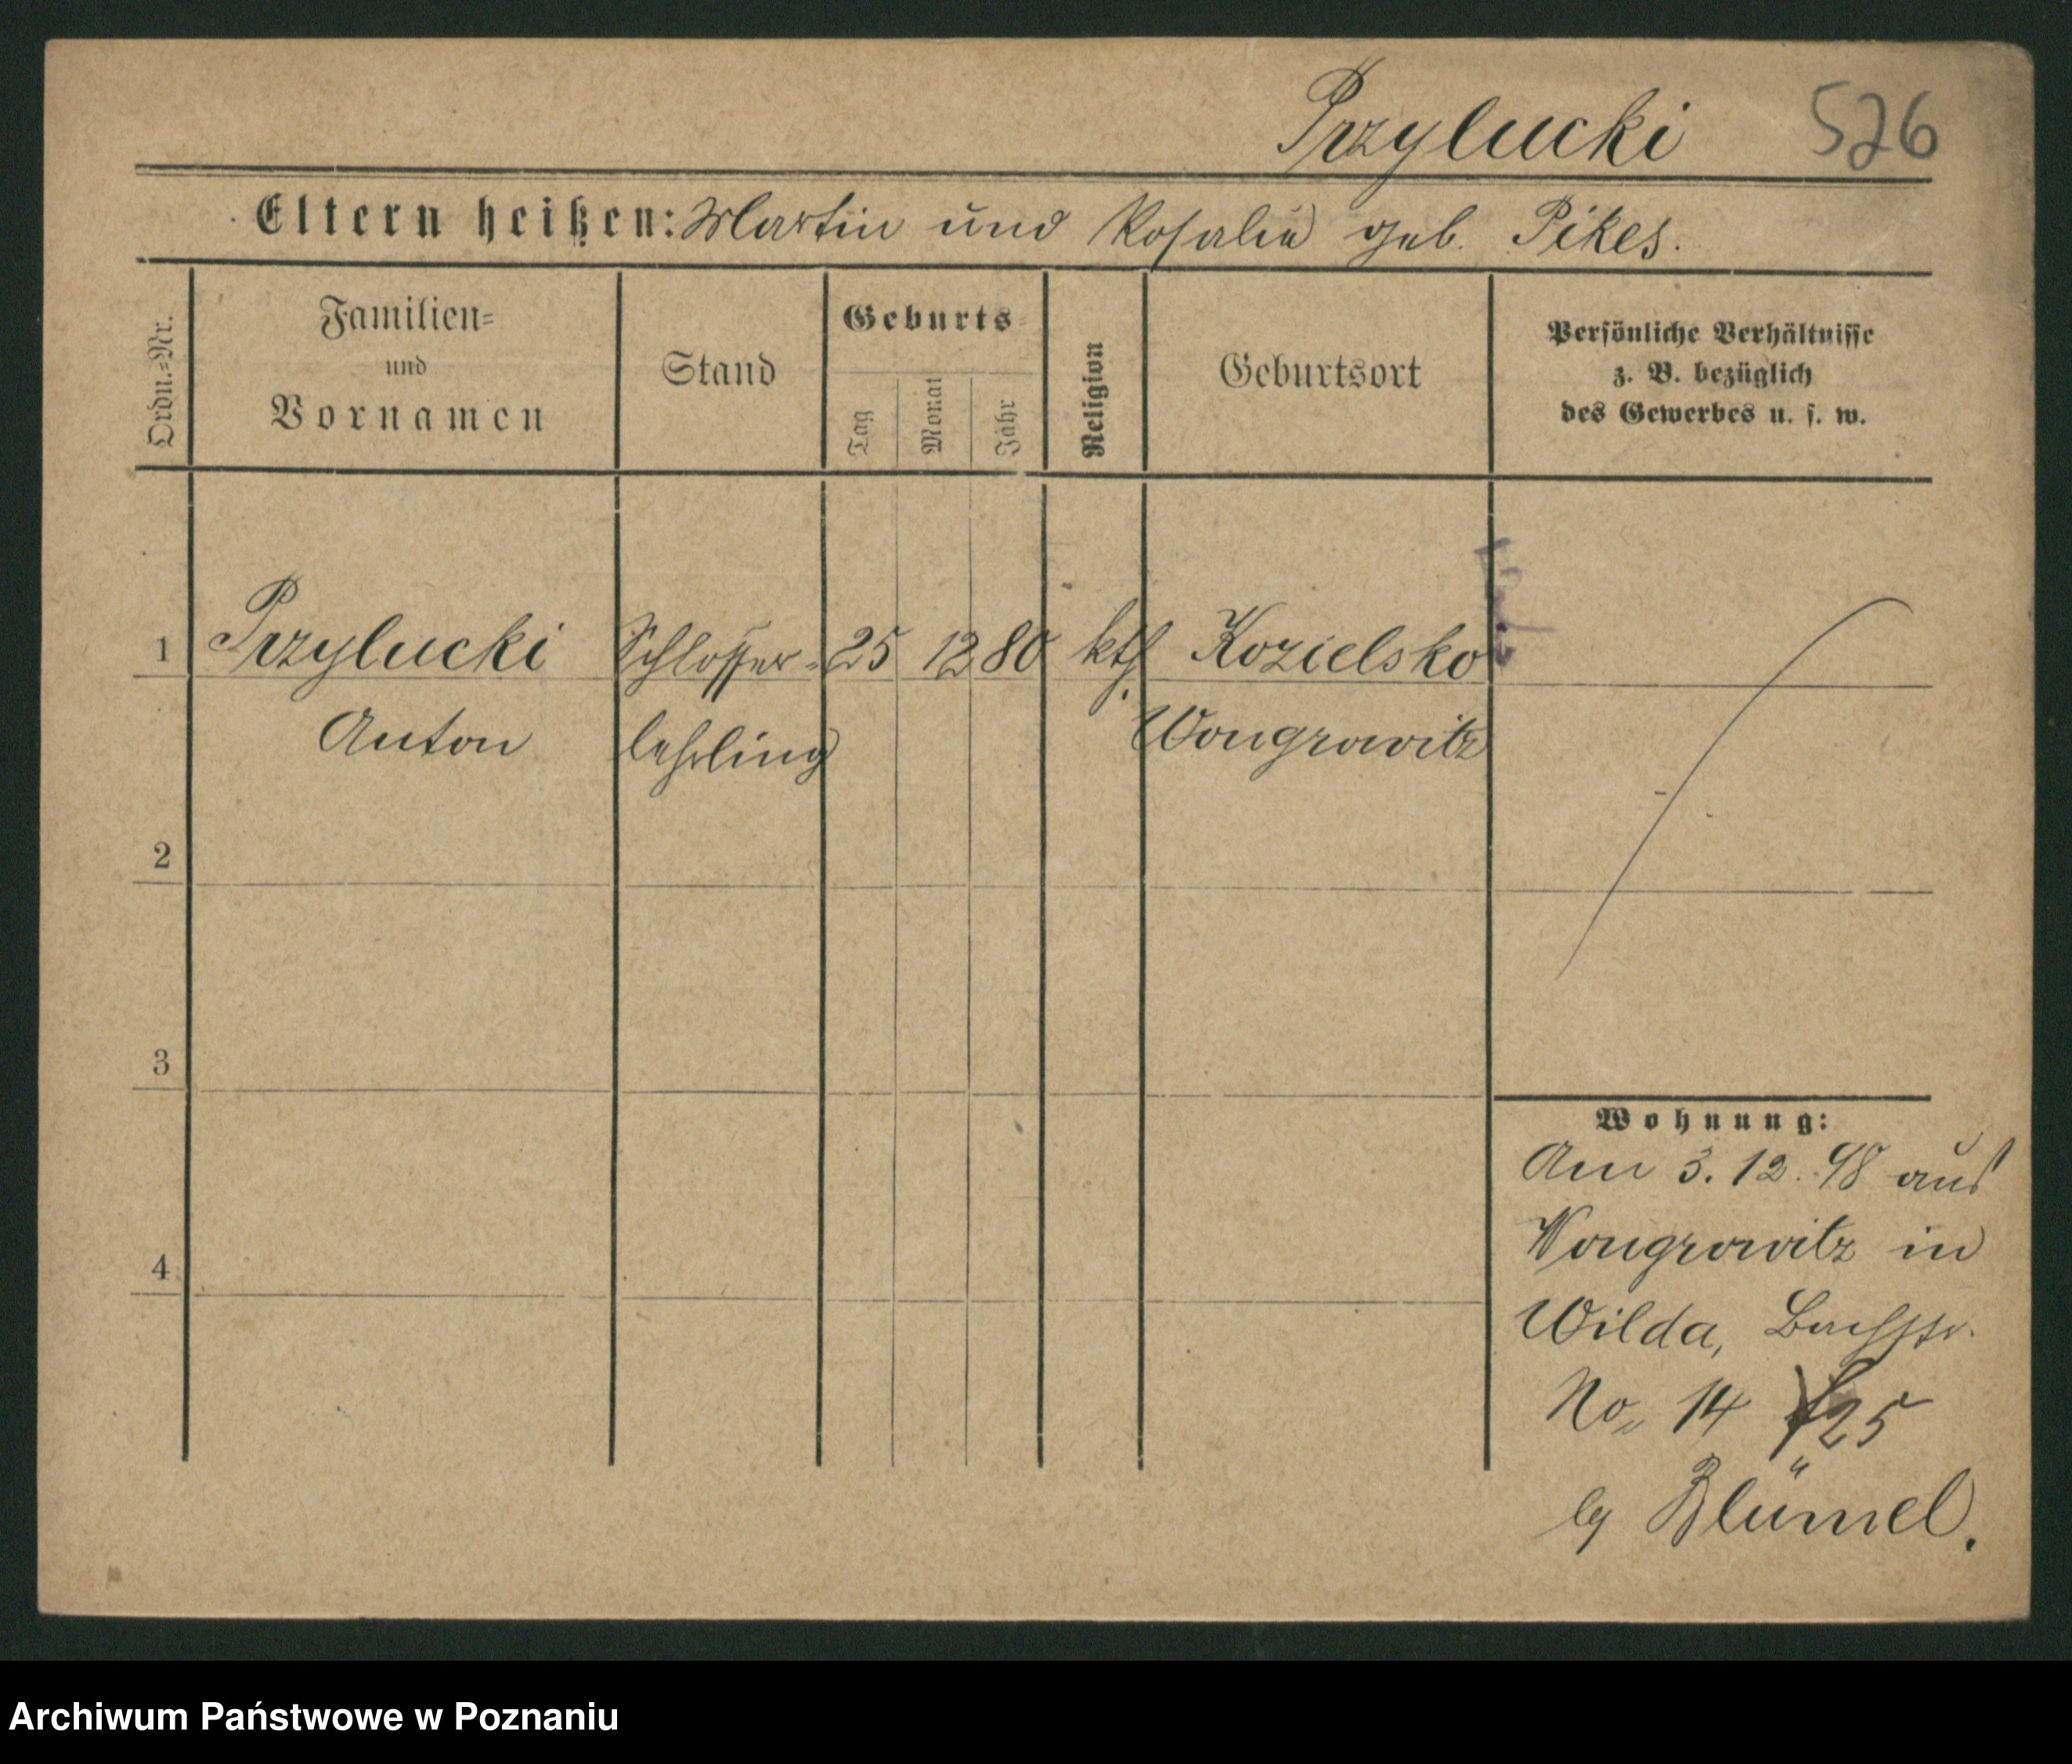 Przylucki 526
Eltern heißen: Martin und Rosalie geb. Pikes.
Ordn.=Nr.
Familien=
und
Vornamen
Stand
Geburts=
Tag
Monat
Jahr
Religion
Geburtsort
Persönliche Verhältnisse
z. B. bezüglich
des Gewerbes u. s. w.
1 Przylucki Schlosser- 25 12 80 kth. Kozielsko
Anton lehrling Wongrowitz
2
3
4
Wohnung:
Am 3.12.98 aus
Wongrowitz in
Wilda, Bachstr.
No. 14 25
by Blümel.
Archiwum Państwowe w Poznaniu